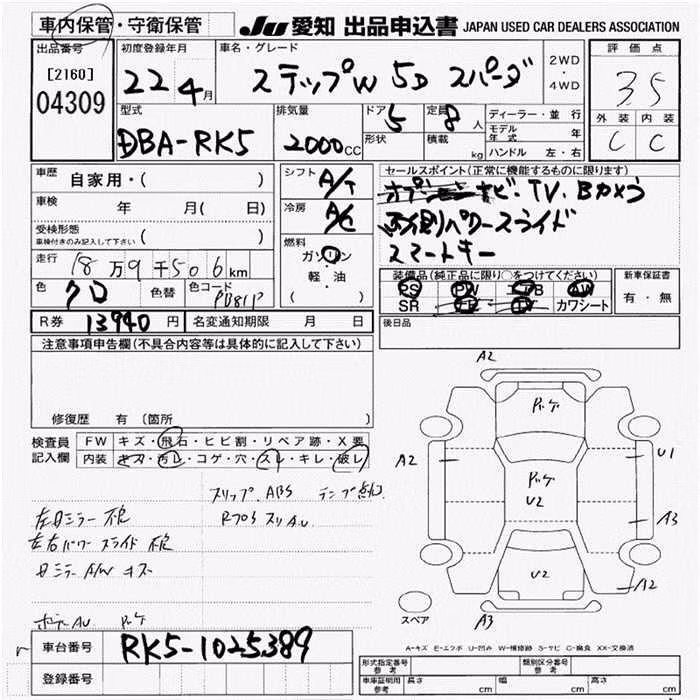 車内保管・守衛保管
JU 愛知 出品申込書 JAPAN USED CAR DEALERS ASSOCIATION
出品番号
[2160]
04309
初度登録年月
22 4月
車名・グレード
ステップW 5D スパーダ
2WD
・
4WD
評価点
3.5
外装 内装
C C
型式
DBA-RK5
排気量
2000cc
ドア 5
形状
定員 8人
積載 kg
ディーラー・並行
モデル年式 年
ハンドル 左・右
車歴 自家用・( )
車検 年 月( 日)
受検形態
車検付きのみ記入して下さい ( )
走行 18万9千506km
色 クロ 色替 色コード
R券 13940円 名変通知期限 月 日
シフト A/T
冷房 A/C
燃料
ガソリン
軽・油
( )
セールスポイント(正常に機能するものに限ります)
ナビ・TV、Bカメラ
両側パワースライド
スマートキー
装備品(純正品に限り○をつけてください)
PS PW TB AW
SR カワシート
新車保証書
有・無
後日品
注意事項申告欄(不具合内容等は具体的に記入して下さい)
修復歴 有 (箇所 )
検査員記入欄
FW キズ・飛石・ヒビ割・リペア跡・X要
内装 キズ・汚レ・コゲ・穴・スレ・キレ・破レ
スリップ、ABS ランプ点灯
左日ミラー 不良
左右パワースライド 不良
日ミラー A/W キズ
A2
A2
U1
U2
A3
U2
A2
A3
スペア
A-キズ E-エクボ U-凹み W-補修跡 S-サビ C-腐食 XX-交換済
車台番号 RK5-1025389
登録番号
形式指定番号 参考
類別区分番号 参考
車庫証明用 参考 長さ cm 幅 cm 高さ cm